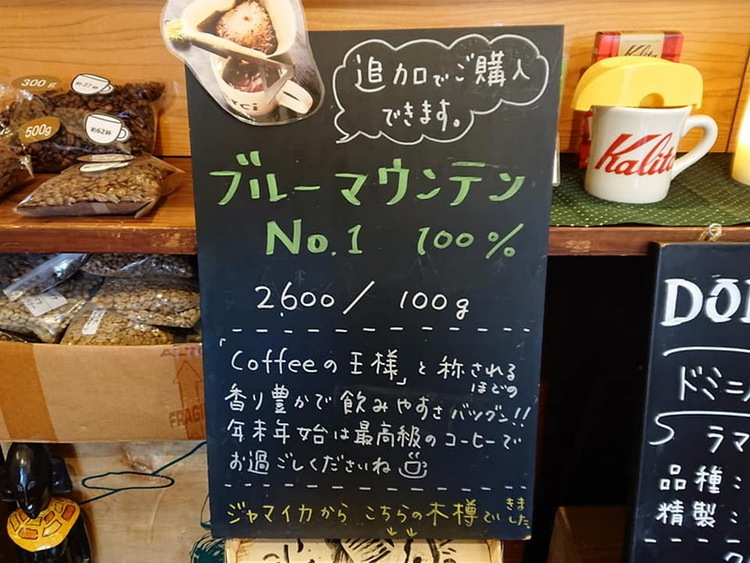 追加でご購入
できます。
ブルーマウンテン
No.1 100%
2,600/100g
「Coffeeの王様」と称される
ほどの
香り豊かで飲みやすさバツグン!!
年末年始は最高級のコーヒーで
お過ごしくださいね
ジャマイカから こちらの木樽で
きま
した
300g
500g
約62杯
Kalita
Kalita
FRAGI
DO
ドミニ
ラマ
品種:
精製: